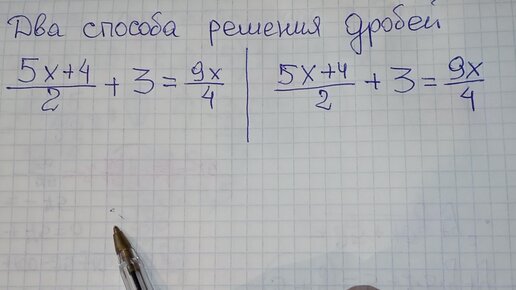 Два способа решения дробей
(5x+4)/2 + 3 = 9x/4 | (5x+4)/2 + 3 = 9x/4